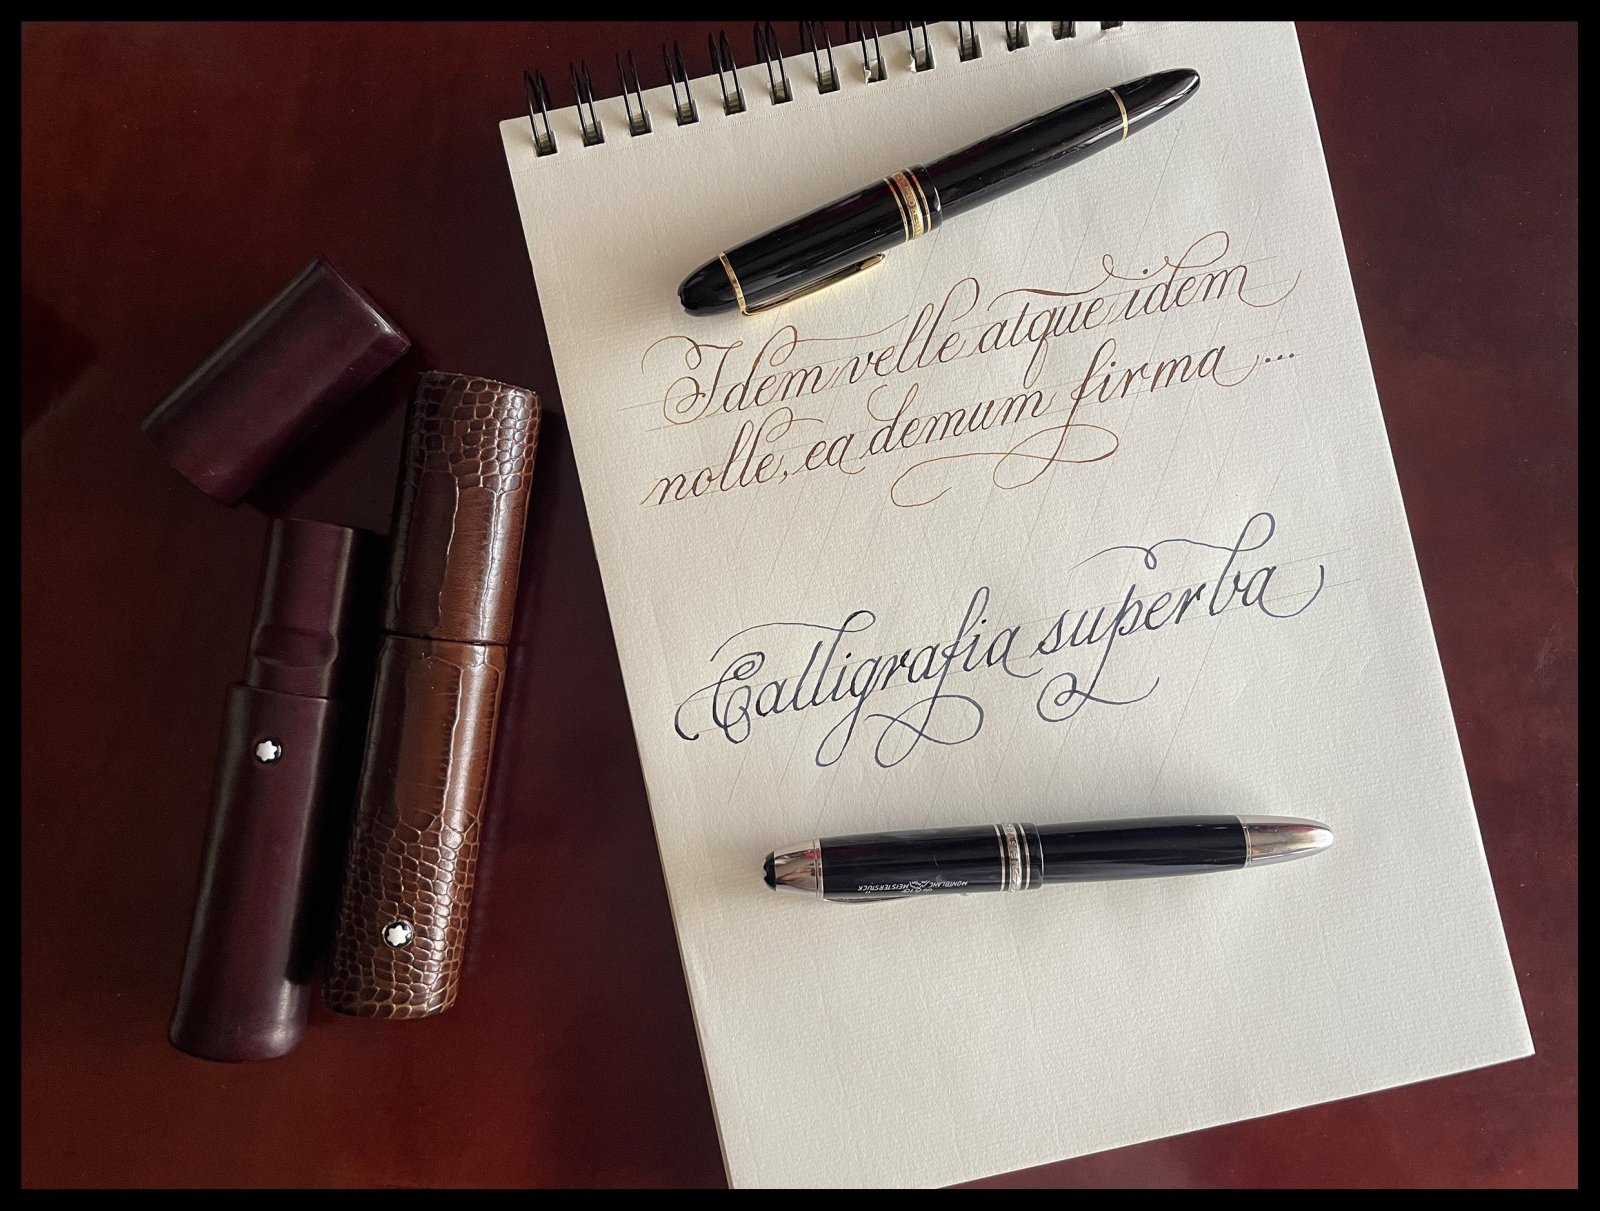 Idem velle atque idem
nolle, ea demum firma ...
Calligrafia superba
MONTBLANC MEISTERSTÜCK